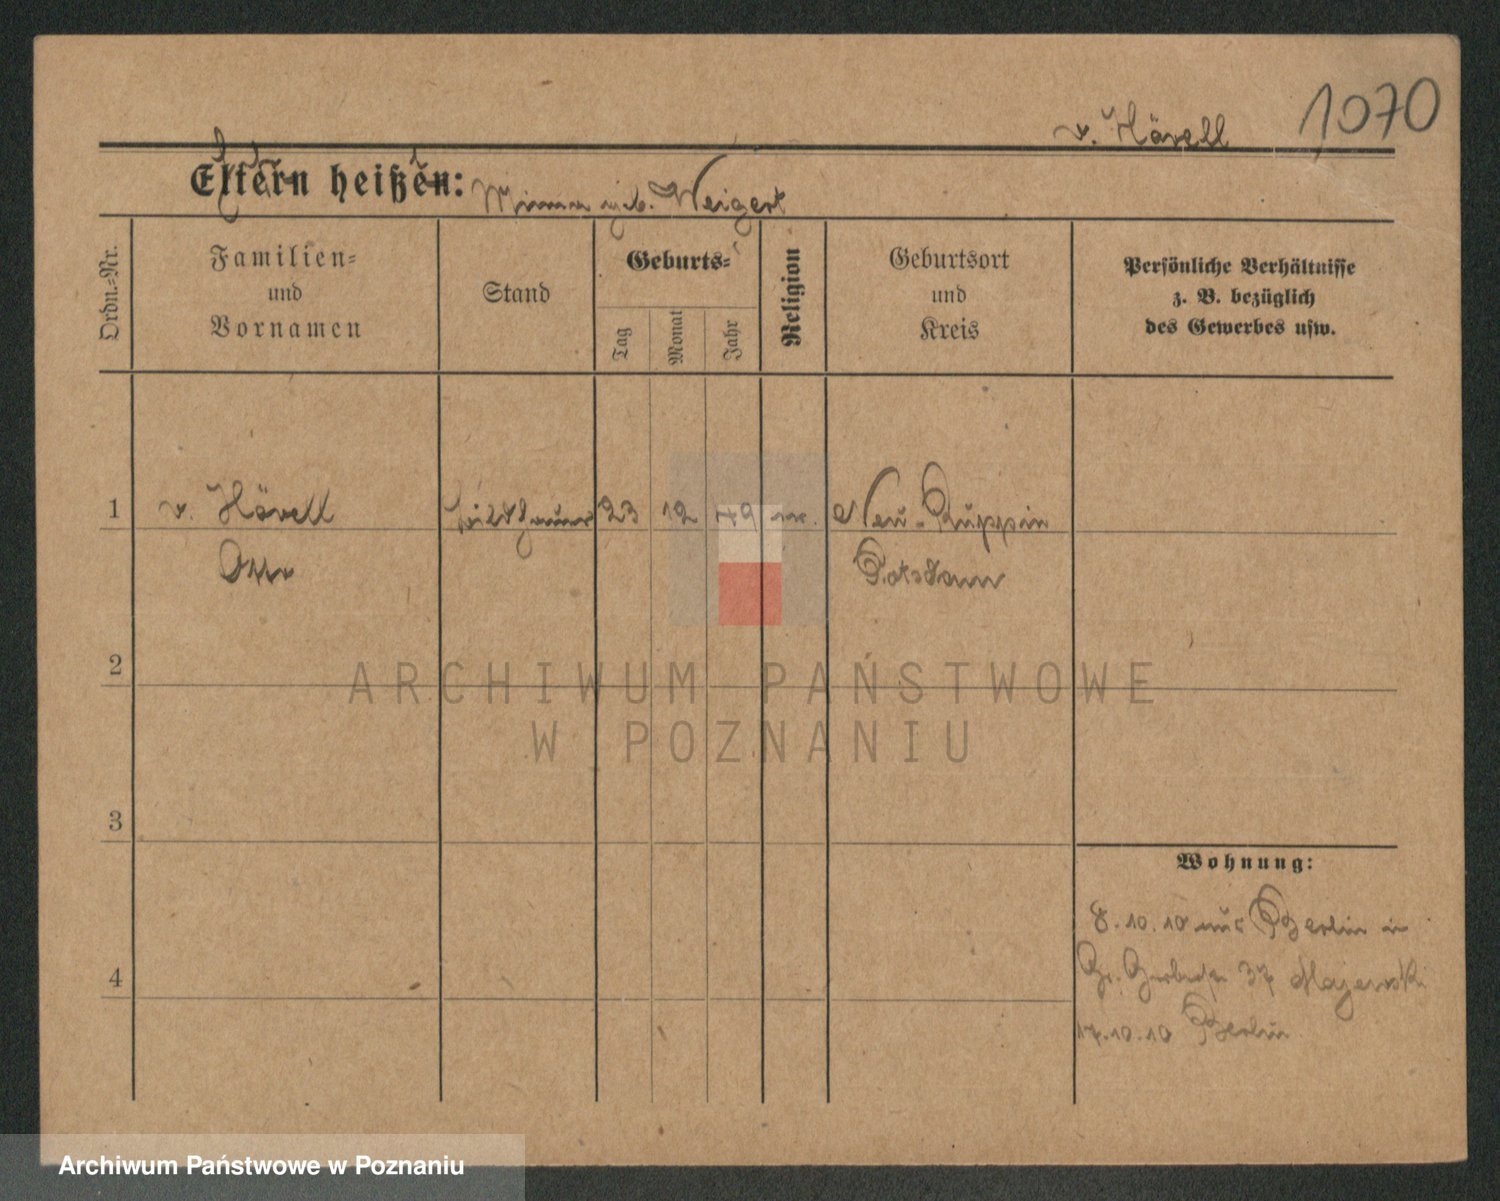 1070
v. Hövell
Eltern heißen: Minna geb. Weigert
Ordn.-Nr.
Familien-
und
Vornamen
Stand
Geburts-
Tag
Monat
Jahr
Religion
Geburtsort
und
Kreis
Persönliche Verhältnisse
z. B. bezüglich
des Gewerbes usw.
1 v. Hövell Bildhauer 23 12 49 Neu-Ruppin
Otto Potsdam
ARCHIWUM PAŃSTWOWE
W POZNANIU
2
3
4
Wohnung:
8.10.10 aus Berlin in
Gr. 37 Majewski
17.10.10 Berlin
Archiwum Państwowe w Poznaniu